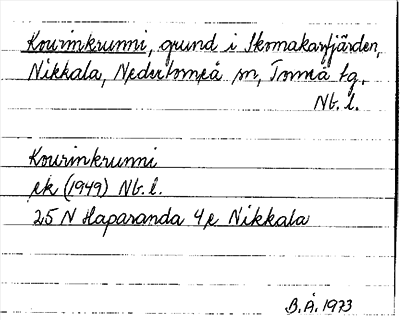 Kourinkrunni, grund i Skomakarfjärden,
Nikkala, Nedertorneå sn, Torneå tg.
Nb. l.
Kourinkrunni
ek (1949) Nb. l.
25 N Haparanda 4 e Nikkala
B. Å. 1973